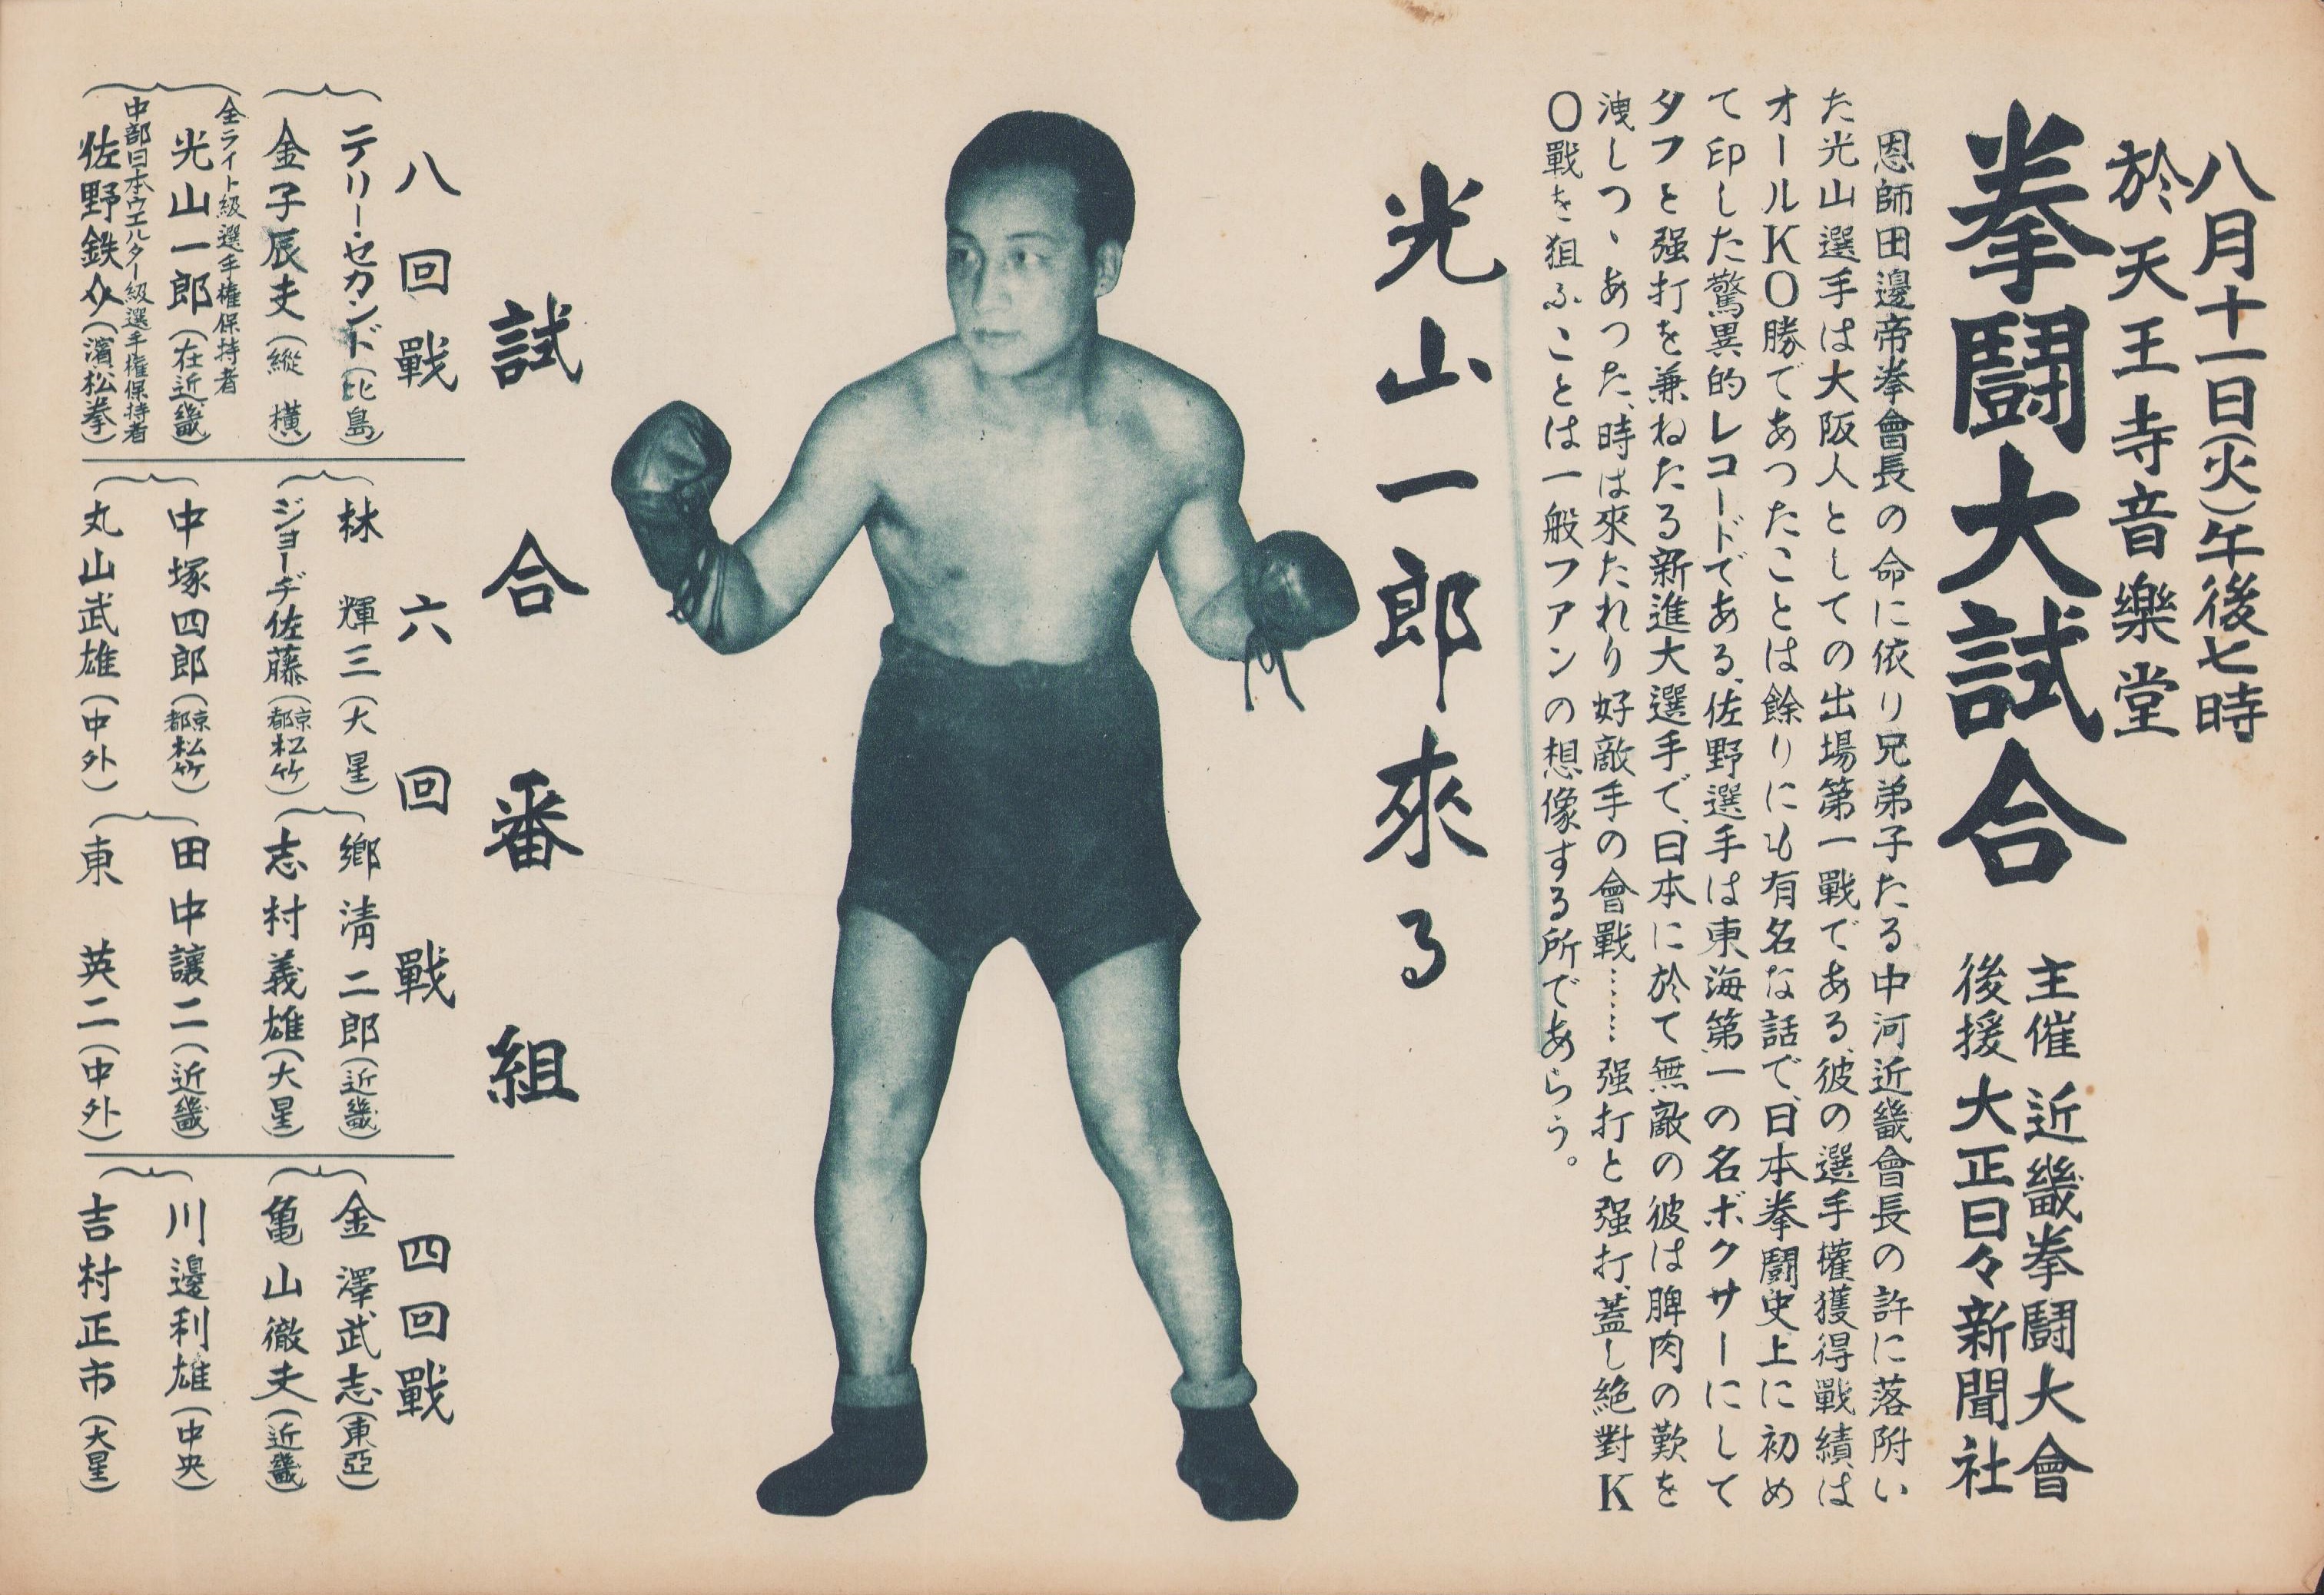 八月十一日(火)午後七時
於天王寺音樂堂
拳鬪大試合
主催 近畿拳鬪大會
後援 大正日々新聞社
恩師田邊帝拳會長の命に依り兄弟子たる中河近畿會長の許に落附い
た光山選手は大阪人としての出場第一戰である、彼の選手權獲得戰績は
オールKO勝であつたことは餘りにも有名な話で、日本拳鬪史上に初め
て印した驚異的レコードである、佐野選手は東海第一の名ボクサーにして
タフと强打を兼ねたる新進大選手で、日本に於て無敵の彼は脾肉の歎を
洩しつゝあつた、時は來たれり好敵手の會戰……强打と强打、蓋し絶對K
O戰を狙ふことは一般ファンの想像する所であらう。
光山一郎來る
試合番組
八回戰
テリー・セカンド(比島)
金子辰夫(縱橫)
全ライト級選手權保持者
光山一郎(在近畿)
中部日本ウエルター級選手權保持者
佐野鉄(濱松拳)
六回戰
林輝三(大星)
ジョーヂ佐藤(京都松竹)
中塚四郎(京都松竹)
丸山武雄(中外)
鄕淸二郎(近畿)
志村義雄(大星)
田中讓二(近畿)
東英二(中外)
四回戰
金澤武志(東亞)
亀山徹夫(近畿)
川邊利雄(中央)
吉村正市(大星)